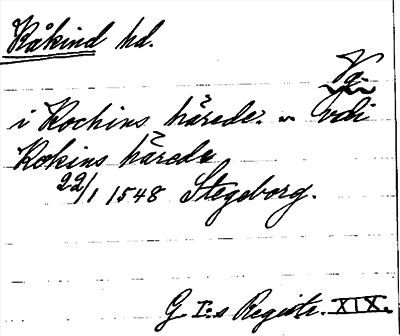 Kåkind hd.
Vg.
i Kockins härede. - vdi
Kokins härede
22/1 1548 Stegeborg.
G I:s Registr. XIX.